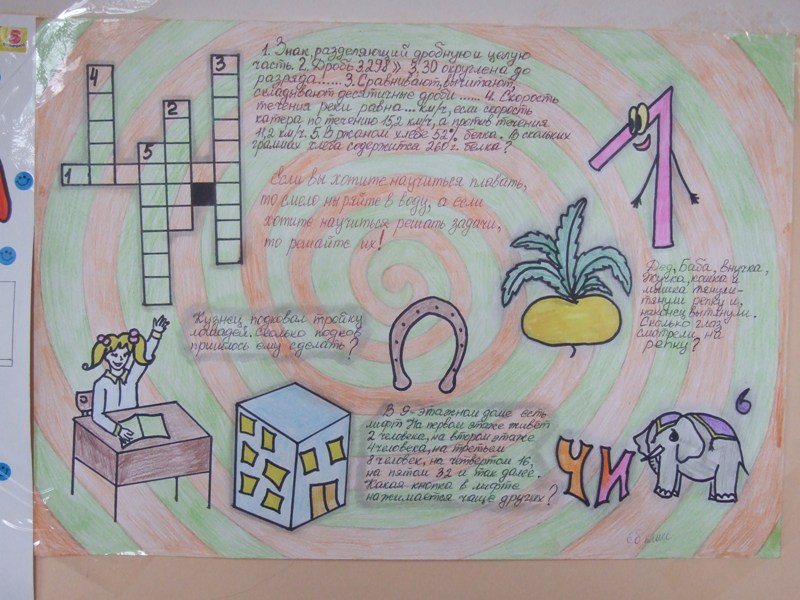 1. Знак, разделяющий дробную и целую
часть. 2. Дробь 3,298 ≈ 3,30 округлена до
разряда!...... 3. Сравнивают, вычитают,
складывают десятичные дроби ...... 4. Скорость
течения реки равна ... км/ч, если скорость
катера по течению 15,2 км/ч, а против течения
11,2 км/ч. 5. В ржаном хлебе 52% белка. В скольких
граммах хлеба содержится 260 г. белка?
4
3
2
5
1
Если вы хотите научиться плавать,
то смело ныряйте в воду, а если
хотите научиться решать задачи,
то решайте их!
1
Дед, Баба, внучка,
Жучка, кошка и
мышка тянули-
тянули репку и,
наконец вытянули.
Сколько глаз
смотрели на
репку?
Кузнец подковал тройку
лошадей. Сколько подков
пришлось ему сделать?
В 9-этажном доме есть
лифт. На первом этаже живёт
2 человека, на втором этаже
4 человека, на третьем
8 человек, на четвертом 16,
на пятом 32 и так далее.
Какая кнопка в лифте
нажимается чаще других?
ЧИ
6
6б класс
5